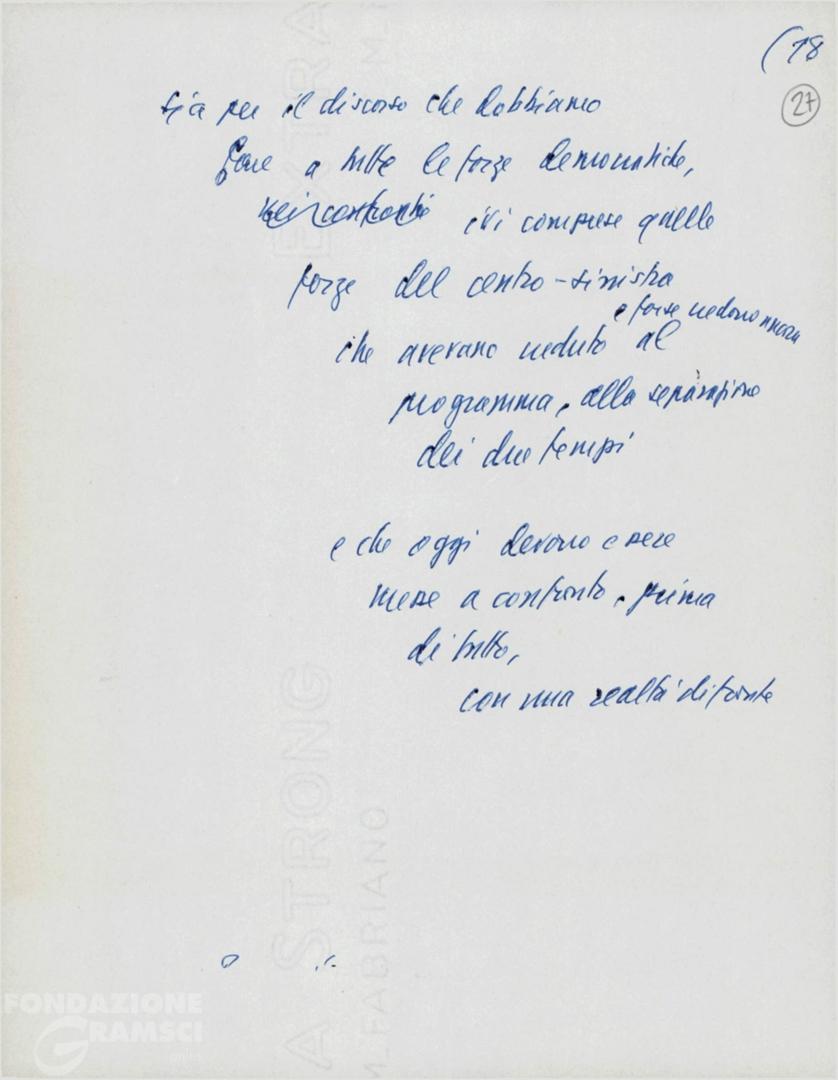 (18
27
sia per il discorso che dobbiamo
fare a tutte le forze democratiche,
nei confronti ivi comprese quelle
forze del centro-sinistra
e forse vedono ancora
che avevano veduto al
programma, alla separazione
dei due tempi
e che oggi devono essere
messe a confronto, prima
di tutto,
con una realtà di fronte
EXTRA
STRONG
A
M_FABRIANO
FONDAZIONE
GRAMSCI
onlus